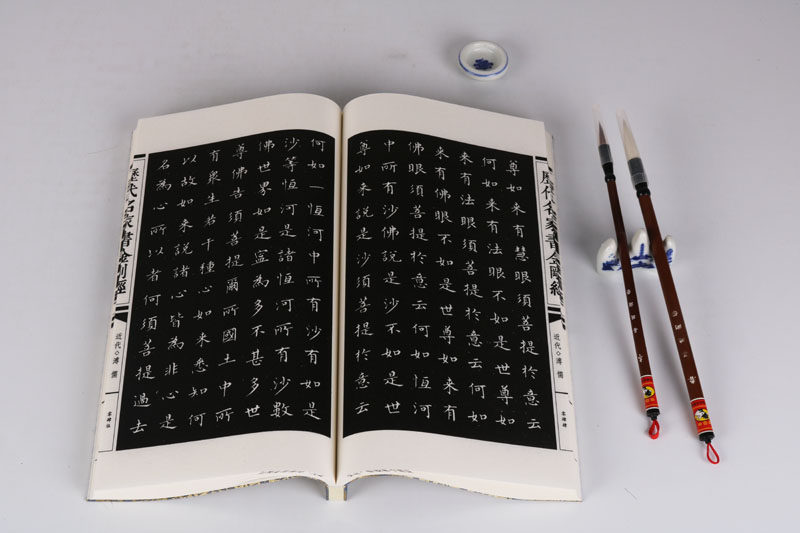 歷代名家書金剛經
近代◇溥儒
尊如來有慧眼須菩提於意云
何如來有法眼不如是世尊如
來有法眼須菩提於意云何如
來有佛眼不如是世尊如來有
佛眼須菩提於意云何如恆河
中所有沙佛說是沙不如是世
尊如來說是沙須菩提於意云
何如一恆河中所有沙有如是
沙等恆河是諸恆河所有沙數
佛世界如是寧為多不甚多世
尊佛告須菩提爾所國土中所
有眾生若干種心如來悉知何
以故如來說諸心皆為非心是
名為心所以者何須菩提過去
歷代名家書金剛經
近代◇溥儒